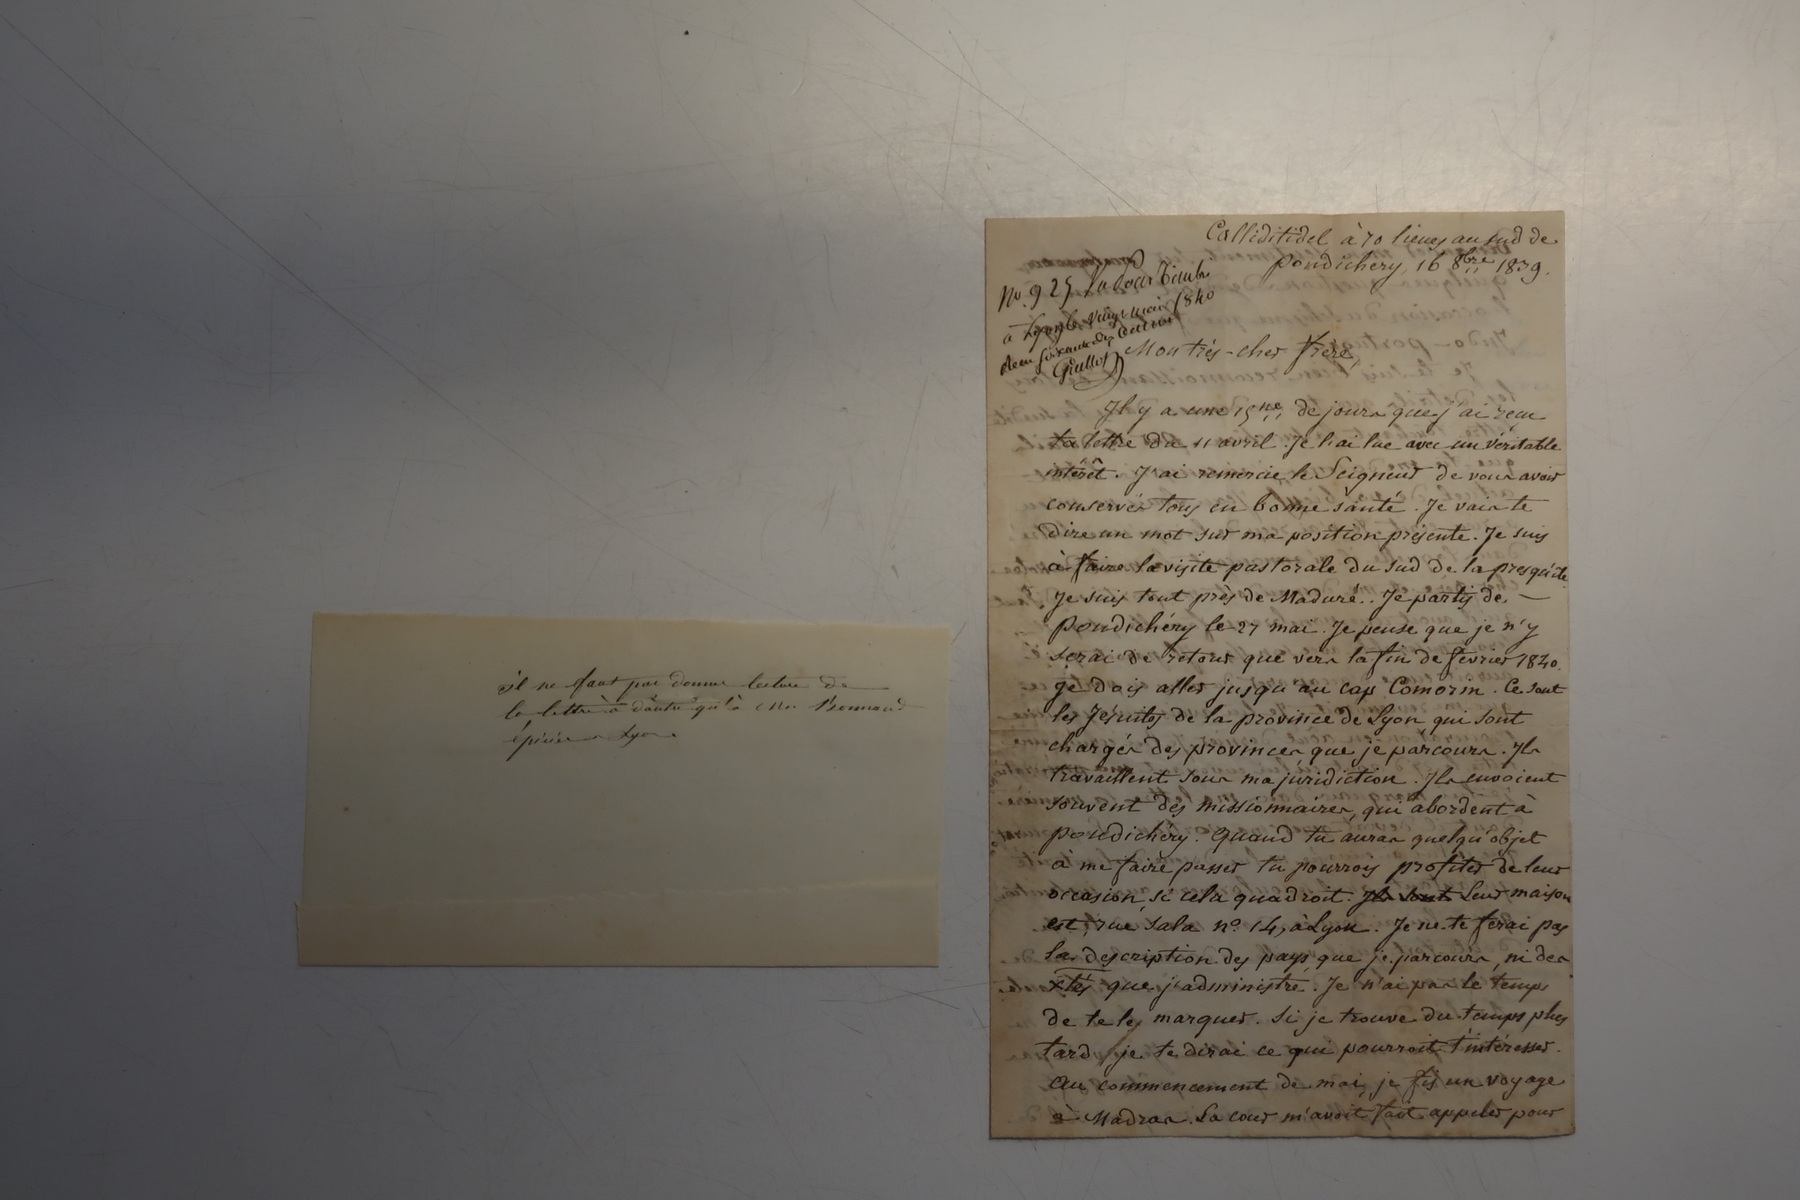 il ne faut pas donner lecture de
la lettre à d'autre qu'à Mr
épicier à Lyon
Calliditidel à 70 lieues au sud de
Pondichéry, 16 8bre 1839.
No. 925 Vu pour Timbre
à Lyon le vingt mai 1840
Mon très-cher frère,
Il y a une 15ne de jours que j'ai reçu
ta lettre du 11 avril. Je l'ai lue avec un véritable
intérêt. J'ai remercié le Seigneur de vous avoir
conservés tous en bonne santé. Je vais te
dire un mot sur ma position présente. Je suis
à faire la visite pastorale du sud de la presqu'ile.
Je suis tout près de Maduré. Je partis de
Pondichéry le 27 mai. Je pense que je n'y
serai de retour que vers la fin de février 1840.
Je dois aller jusqu'au cap Comorin. Ce sont
les Jésuites de la province de Lyon qui sont
chargés des provinces que je parcours. Ils
travaillent sous ma juridiction. Ils envoient
souvent des missionnaires, qui abordent à
Pondichéry. Quand tu auras quelqu'objet
à me faire passer tu pourrois profiter de leur
occasion, si cela quadroit. Ils sont Leur maison
est, rue Sala no. 14, à Lyon. Je ne te ferai pas
la description des pays que je parcours, ni des
xtés que j'administre. Je n'ai pas le temps
de te les marquer. Si je trouve du temps plus
tard, je te dirai ce qui pourroit t'intéresser.
Au commencement de mai, je fis un voyage
à Madras. La cour m'avoit fait appeler pour